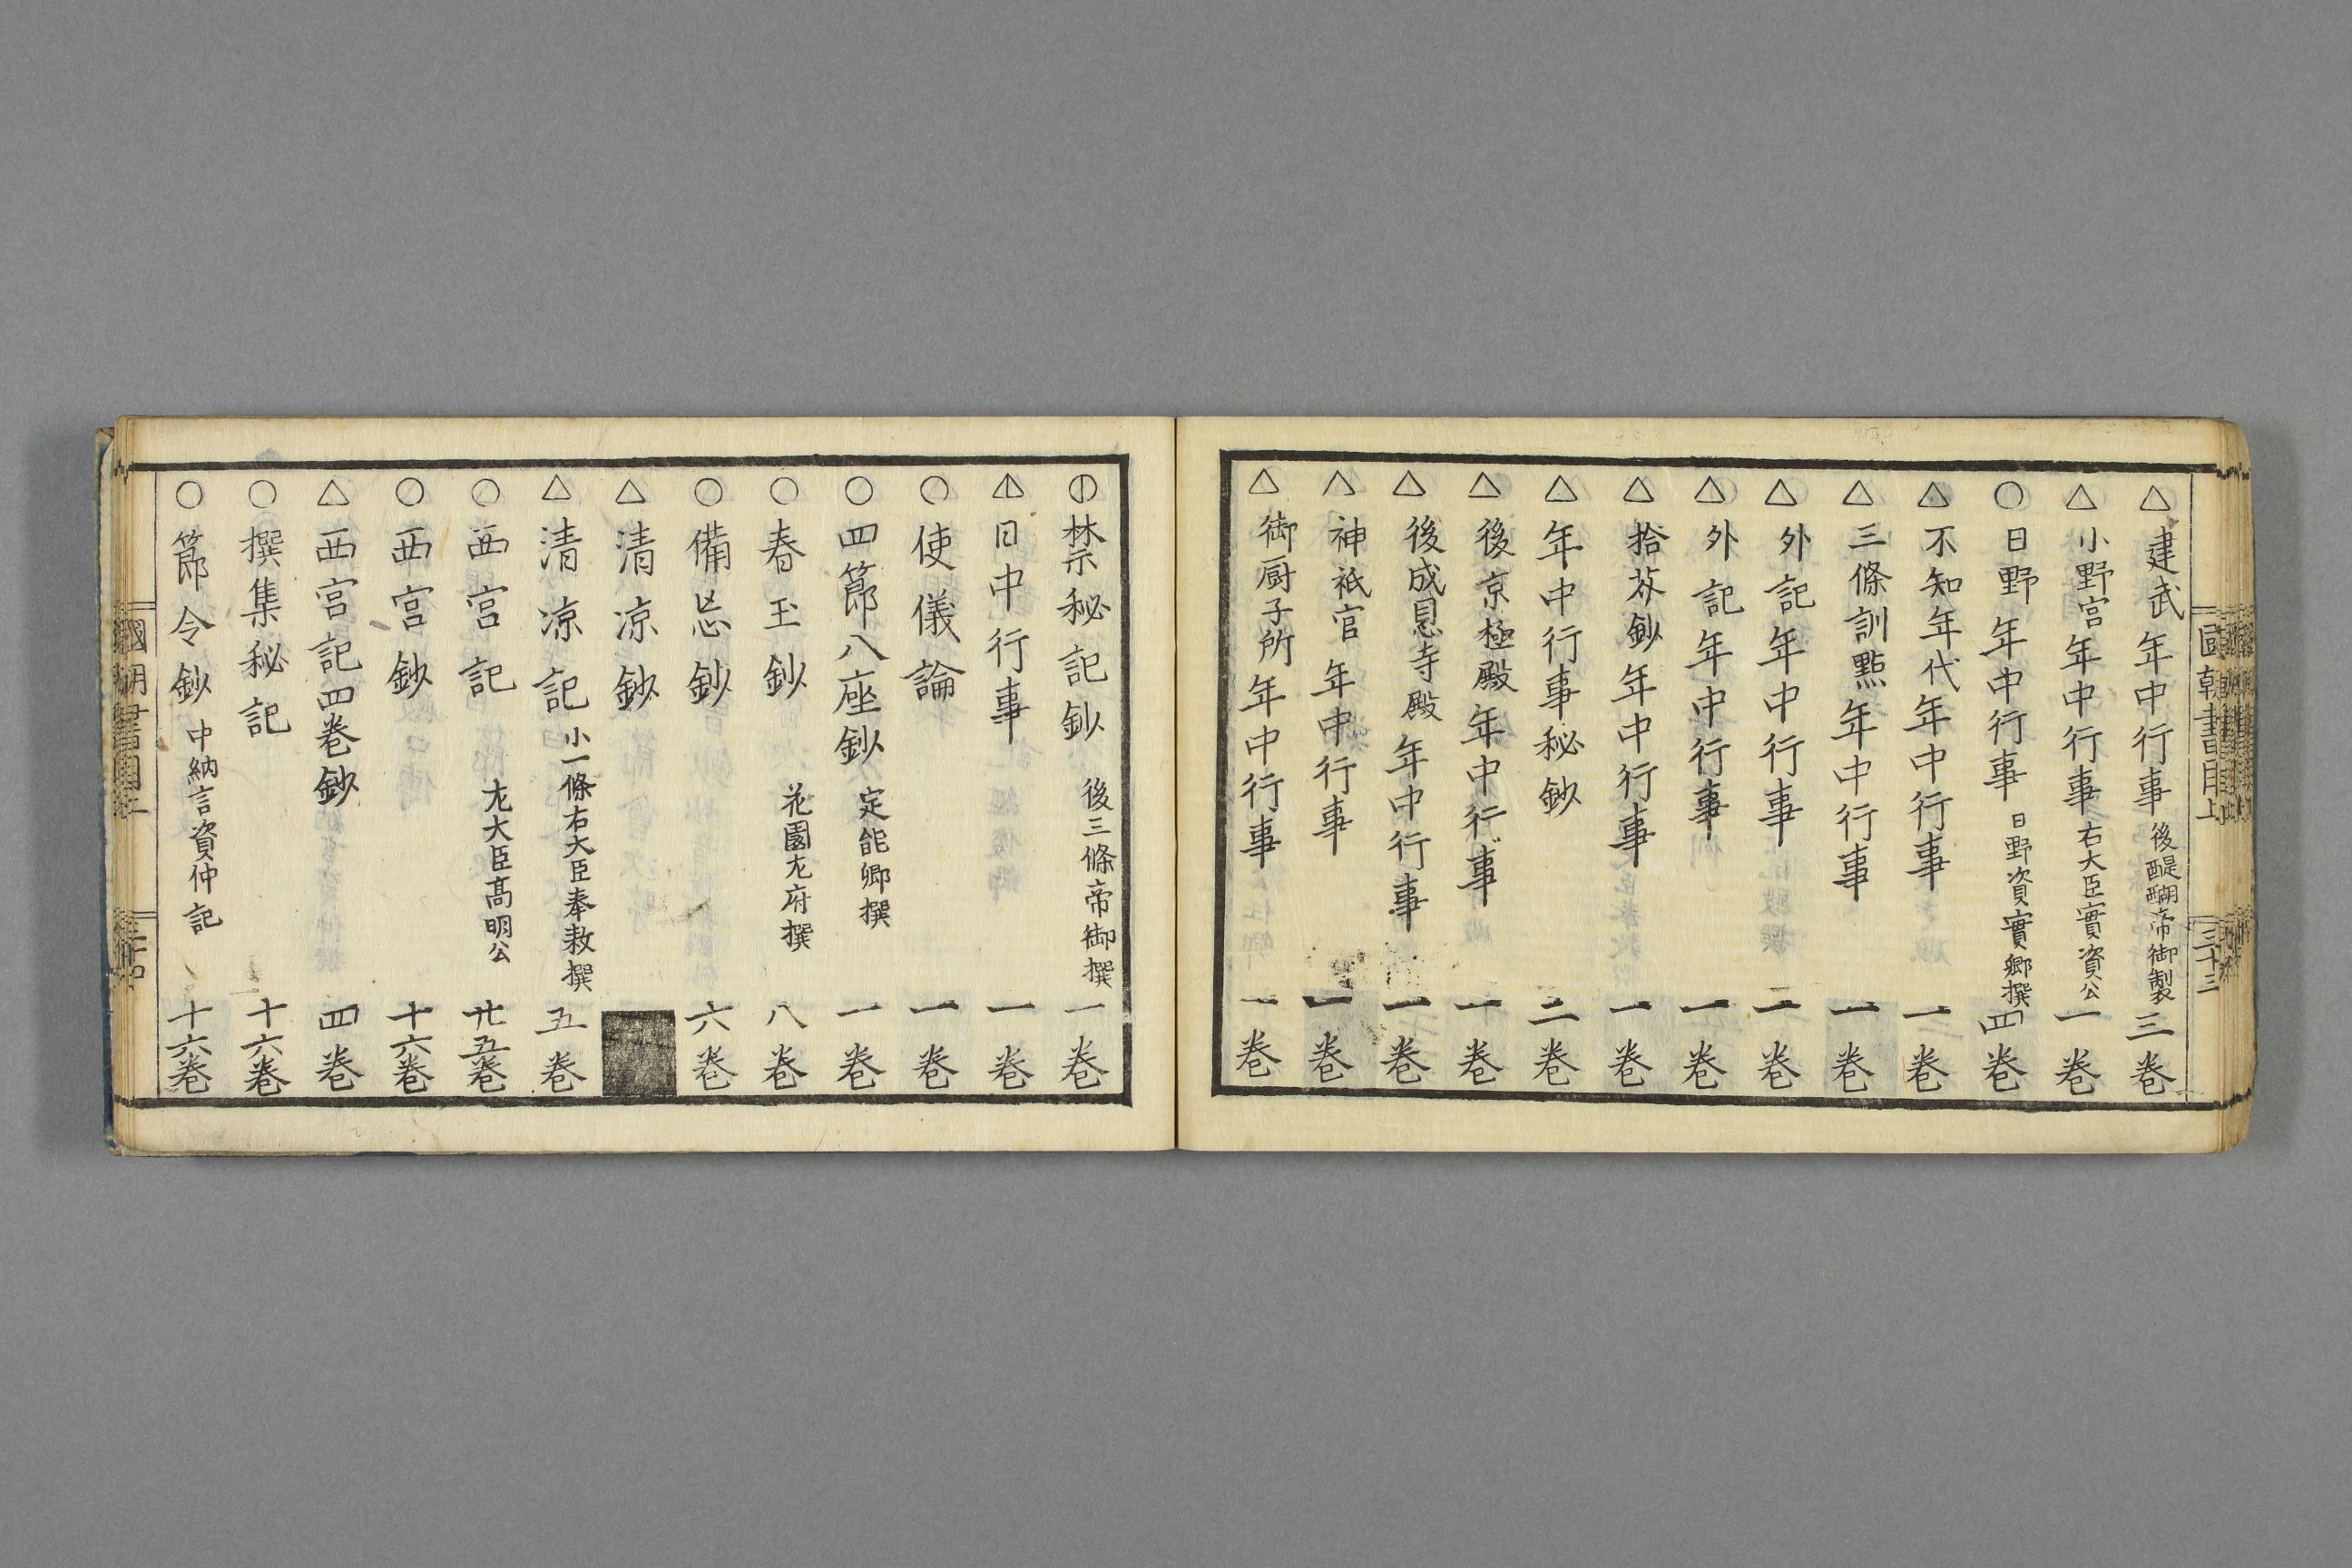 國朝書目上 三十三
△建武年中行事 後醍醐帝御製 三卷
△小野宮年中行事 右大臣實資公 一卷
○日野年中行事 日野資實卿撰 四卷
△不知年代年中行事 一卷
△三條訓點年中行事 一卷
△外記年中行事 一卷
△外記年中行事 一卷
△拾芥鈔年中行事 一卷
△年中行事秘鈔 二卷
△後京極殿年中行事 一卷
△後成恩寺殿年中行事 一卷
△神祇官年中行事 一卷
△御厨子所年中行事 一卷
禁秘記鈔 後三條帝御撰 一卷
日中行事 一卷
○使儀論 一卷
○四節八座鈔 定能卿撰 一卷
○春玉鈔 花園左府撰 八卷
○備忘鈔 六卷
△清凉鈔
△清凉記 小一條右大臣奉敕撰 五卷
○西宮記 左大臣高明公 廿五卷
○西宮鈔 十六卷
△西宮記四卷鈔 四卷
○撰集秘記 十六卷
○節令鈔 中納言資仲記 十六卷
國朝書目上